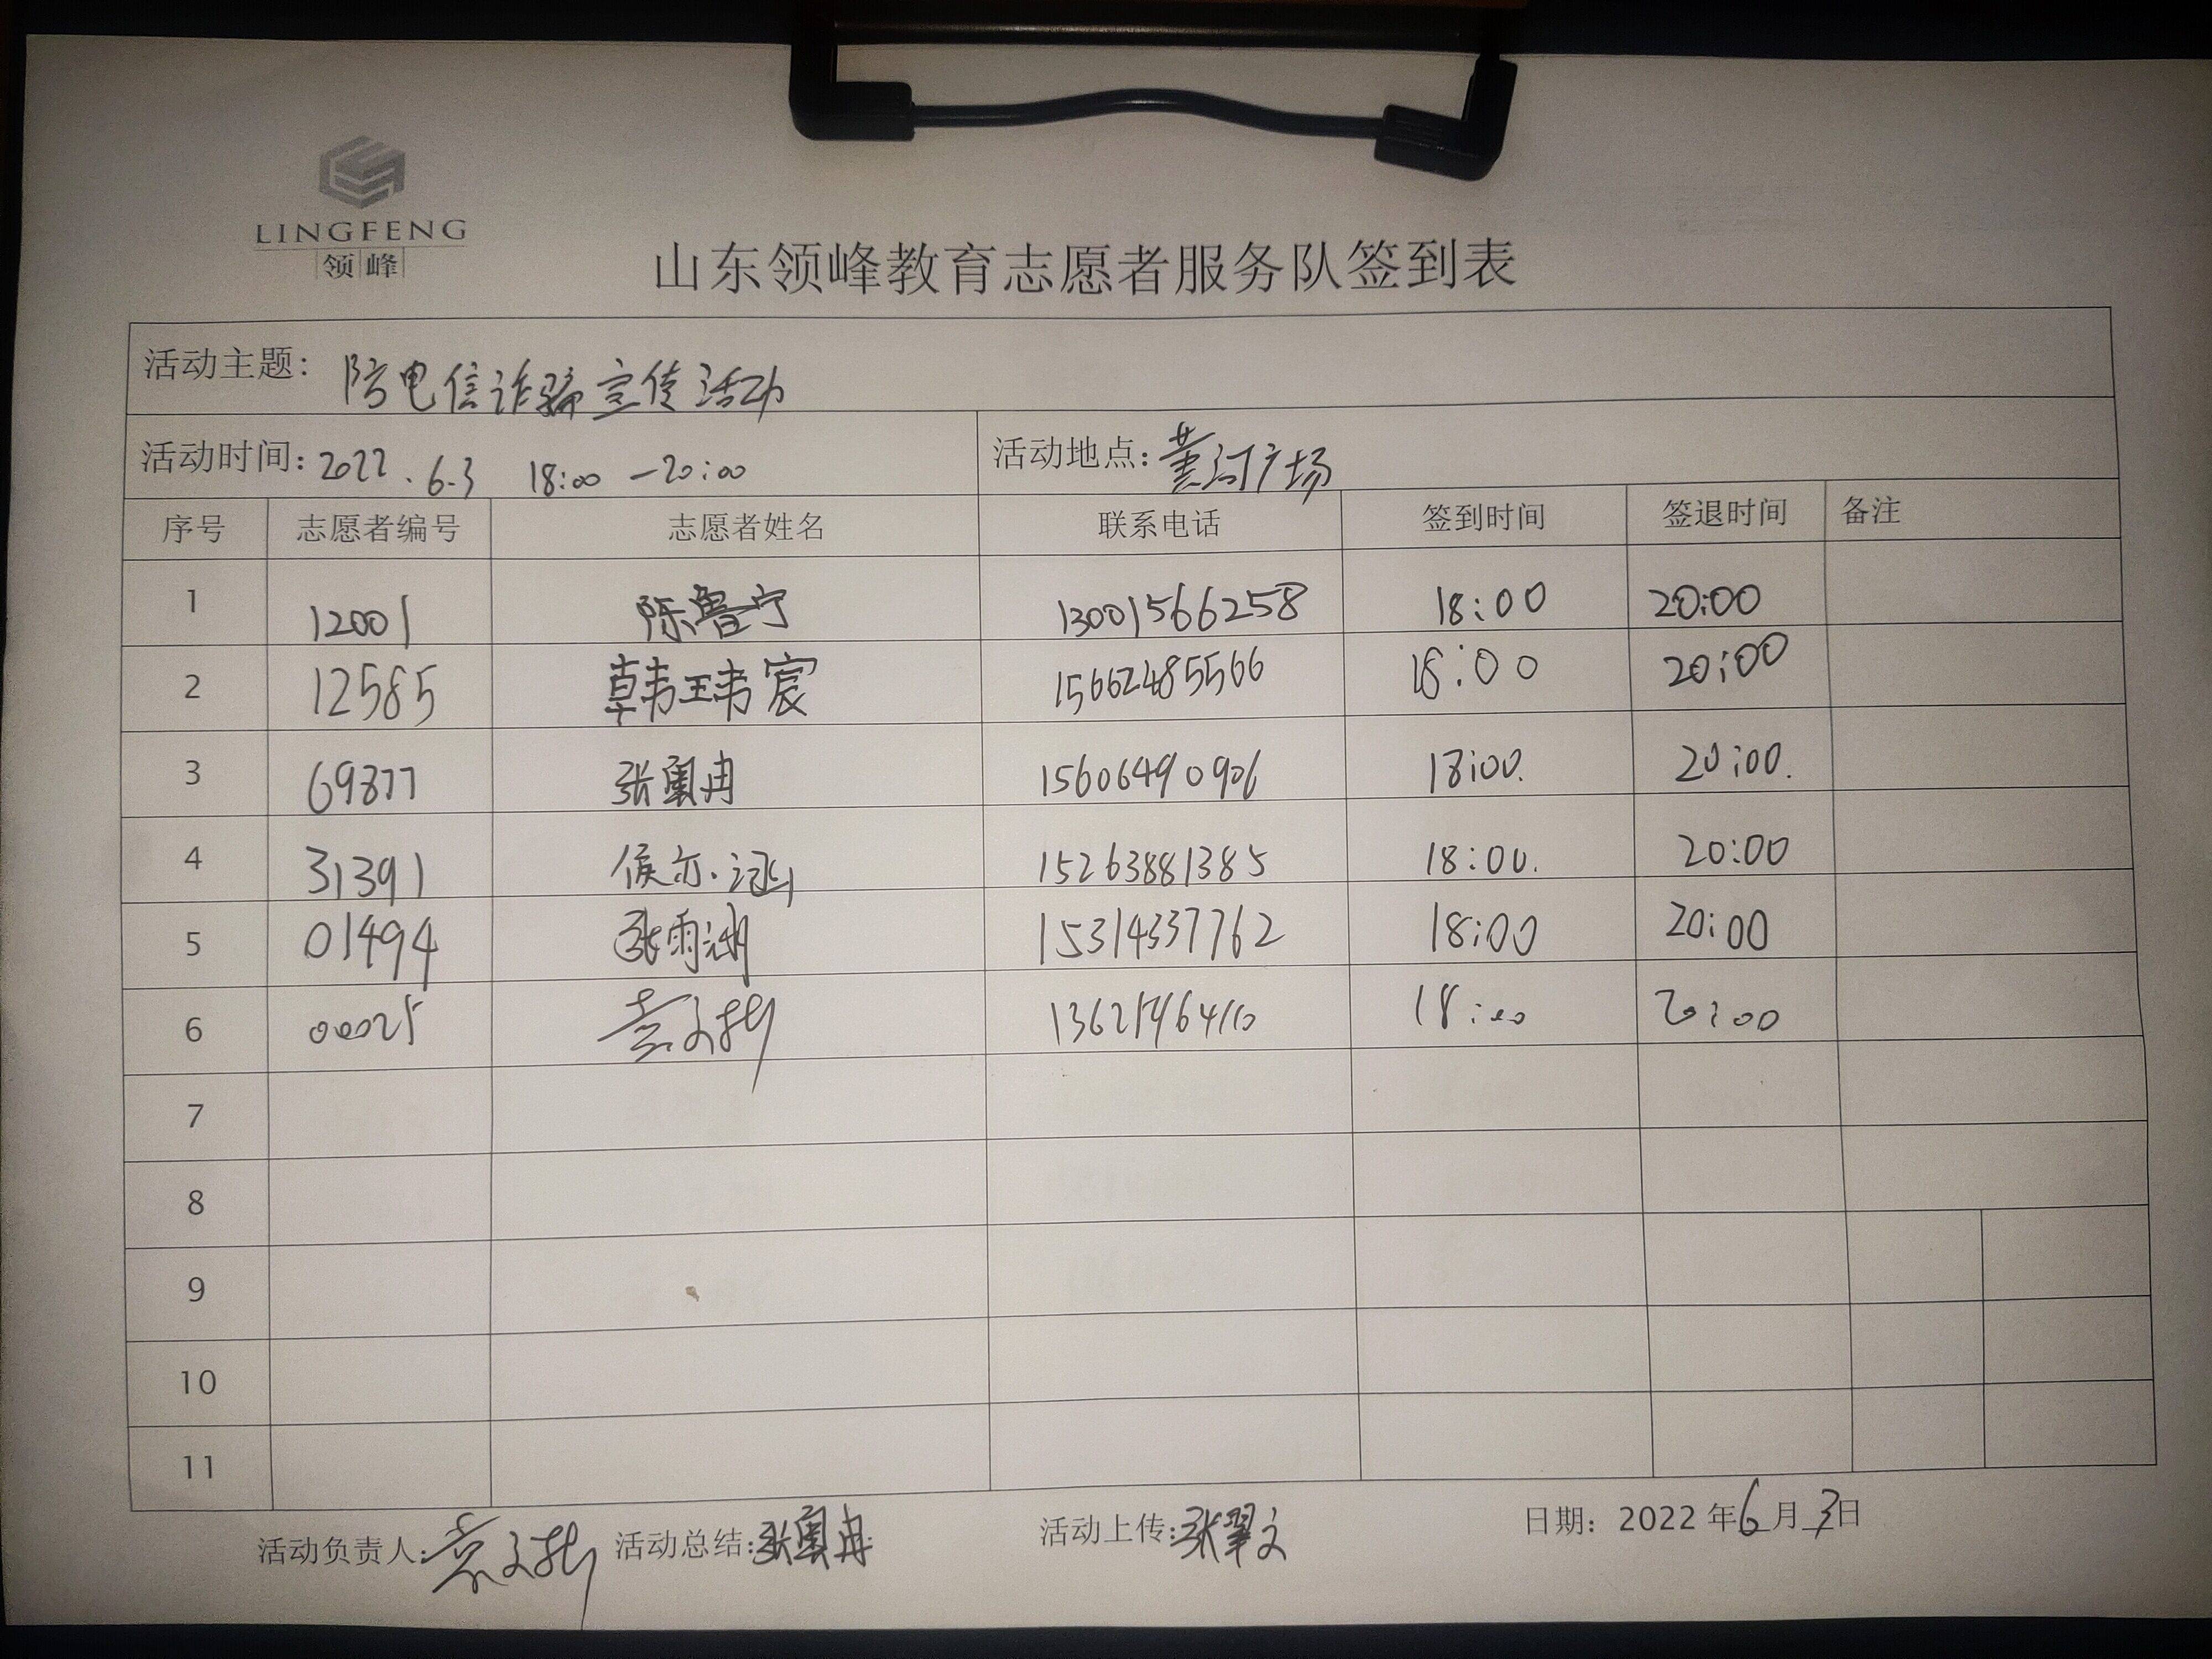 LINGFENG
领峰
山东领峰教育志愿者服务队签到表
活动主题: 防电信诈骗宣传活动
活动时间: 2022.6.3 18:00—20:00 活动地点: 黄河广场
序号 志愿者编号 志愿者姓名 联系电话 签到时间 签退时间 备注
1 12001 陈鲁宁 13001566258 18:00 20:00
2 12585 韩玮宸 15662485566 18:00 20:00
3 69877 张冉 15606490906 18:00. 20:00.
4 31391 侯亦 15263881385 18:00. 20:00
5 01494 张雨湖 15314337762 18:00 20:00
6 00025 袁文彬 18:00 20:00
7
8
9
10
11
活动负责人: 袁文彬 活动总结: 张冉 活动上传: 张翠文 日期: 2022年6月3日